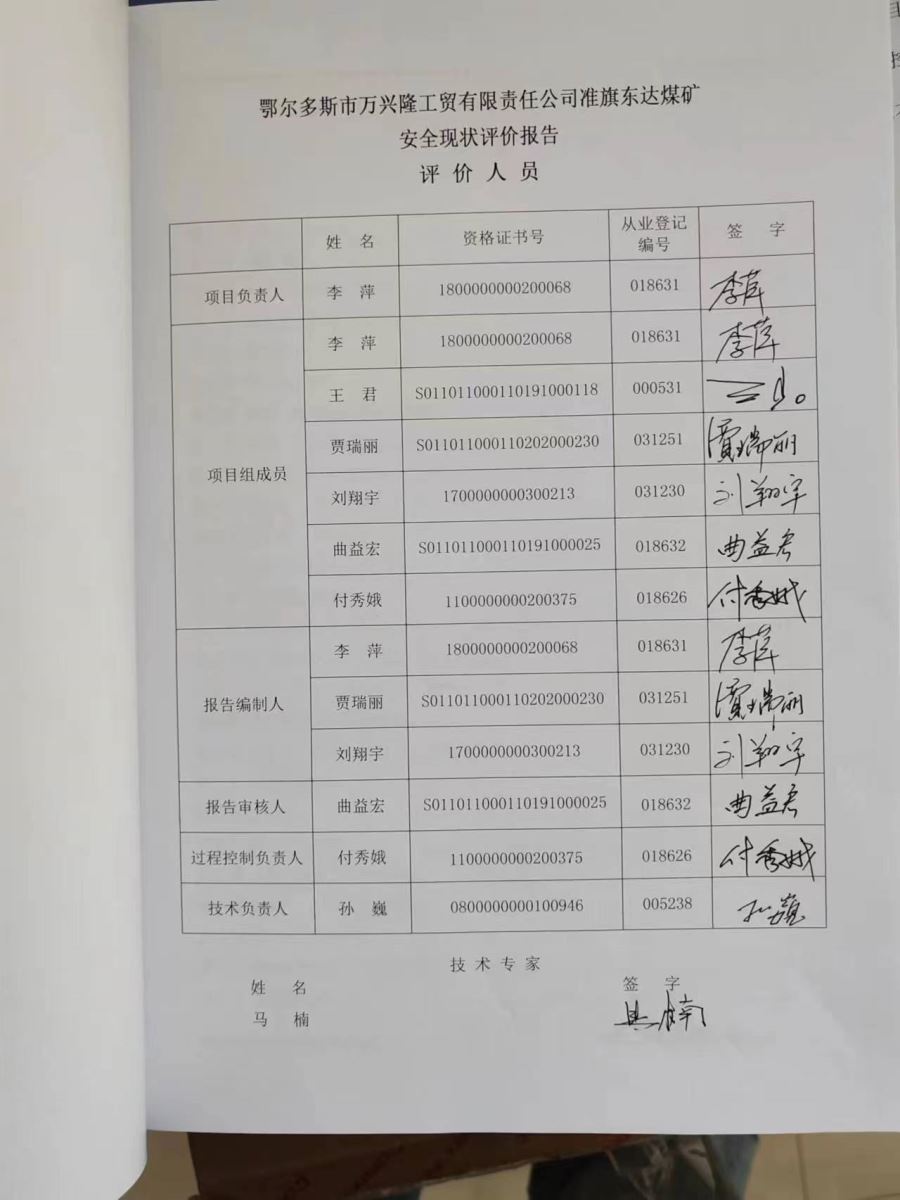 鄂尔多斯市万兴隆工贸有限责任公司准旗东达煤矿
安全现状评价报告
评价人员
姓 名 资格证书号 从业登记编号 签 字
项目负责人 李 萍 1800000000200068 018631 李萍
项目组成员 李 萍 1800000000200068 018631 李萍
王 君 S011011000110191000118 000531
贾瑞丽 S011011000110202000230 031251 贾瑞丽
刘翔宇 1700000000300213 031230 刘翔宇
曲益宏 S011011000110191000025 018632 曲益宏
付秀娥 1100000000200375 018626 付秀娥
报告编制人 李 萍 1800000000200068 018631 李萍
贾瑞丽 S011011000110202000230 031251 贾瑞丽
刘翔宇 1700000000300213 031230 刘翔宇
报告审核人 曲益宏 S011011000110191000025 018632 曲益宏
过程控制负责人 付秀娥 1100000000200375 018626 付秀娥
技术负责人 孙 巍 0800000000100946 005238 孙巍
技术专家
姓 名 签 字
马 楠 马楠